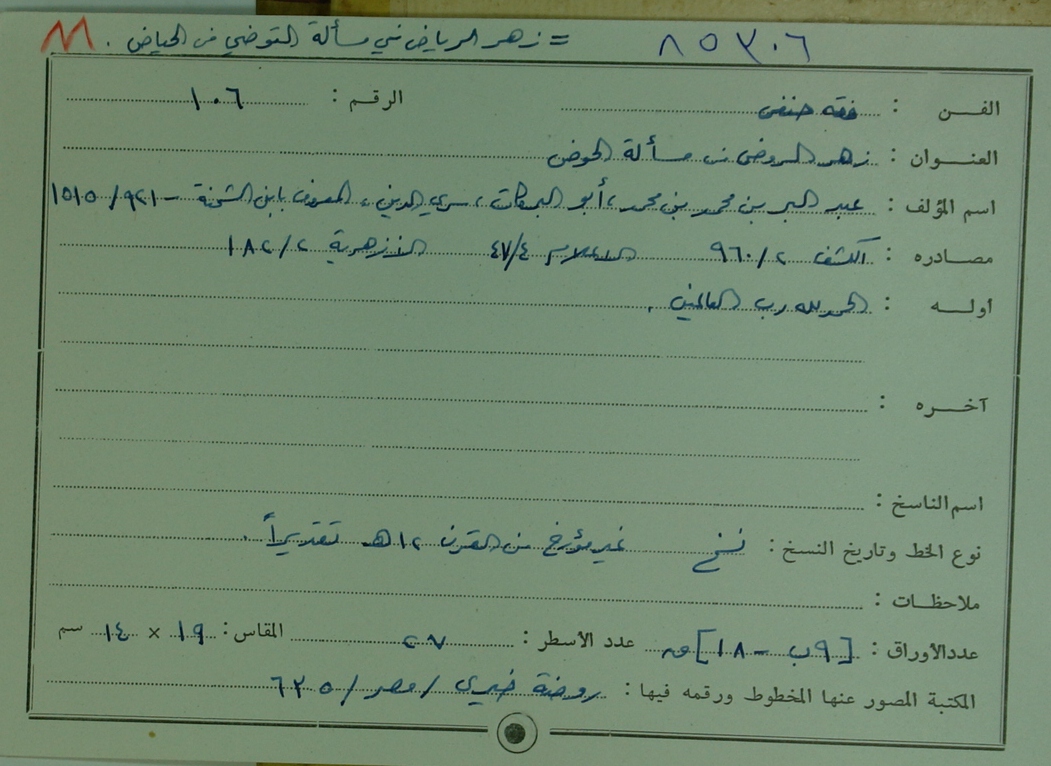 ٨٥٣٠٦ = زهر الرياض في مسألة التوضي من الحياض . M
الفـن : فقه حنفي الرقم : ١٠٦
العنـوان : زهر الروض في مسألة الحوض
اسم المؤلف : عبد البر بن محمد بن محمد، أبو البركات، سري الدين، المعروف بابن الشحنة - ٩٢١/١٥١٥
مصـادره : الكشف ٢/٩٦٠ الاعلام ٤/٤٧ الأزهرية ٢/١٨٢
أولـه : الحمد لله رب العالمين .
آخـره :
اسم الناسخ :
نوع الخط وتاريخ النسخ : نسخ غير مؤرخ من القرن ١٢هـ تقديراً .
ملاحظـات :
عددالأوراق : [٩ب - ١٨] ق عدد الأسطر : ٢٧ المقاس : ١٩ × ١٤ سم
المكتبة المصور عنها المخطوط ورقمه فيها : روضة خيري / مصر / ٦٣٥